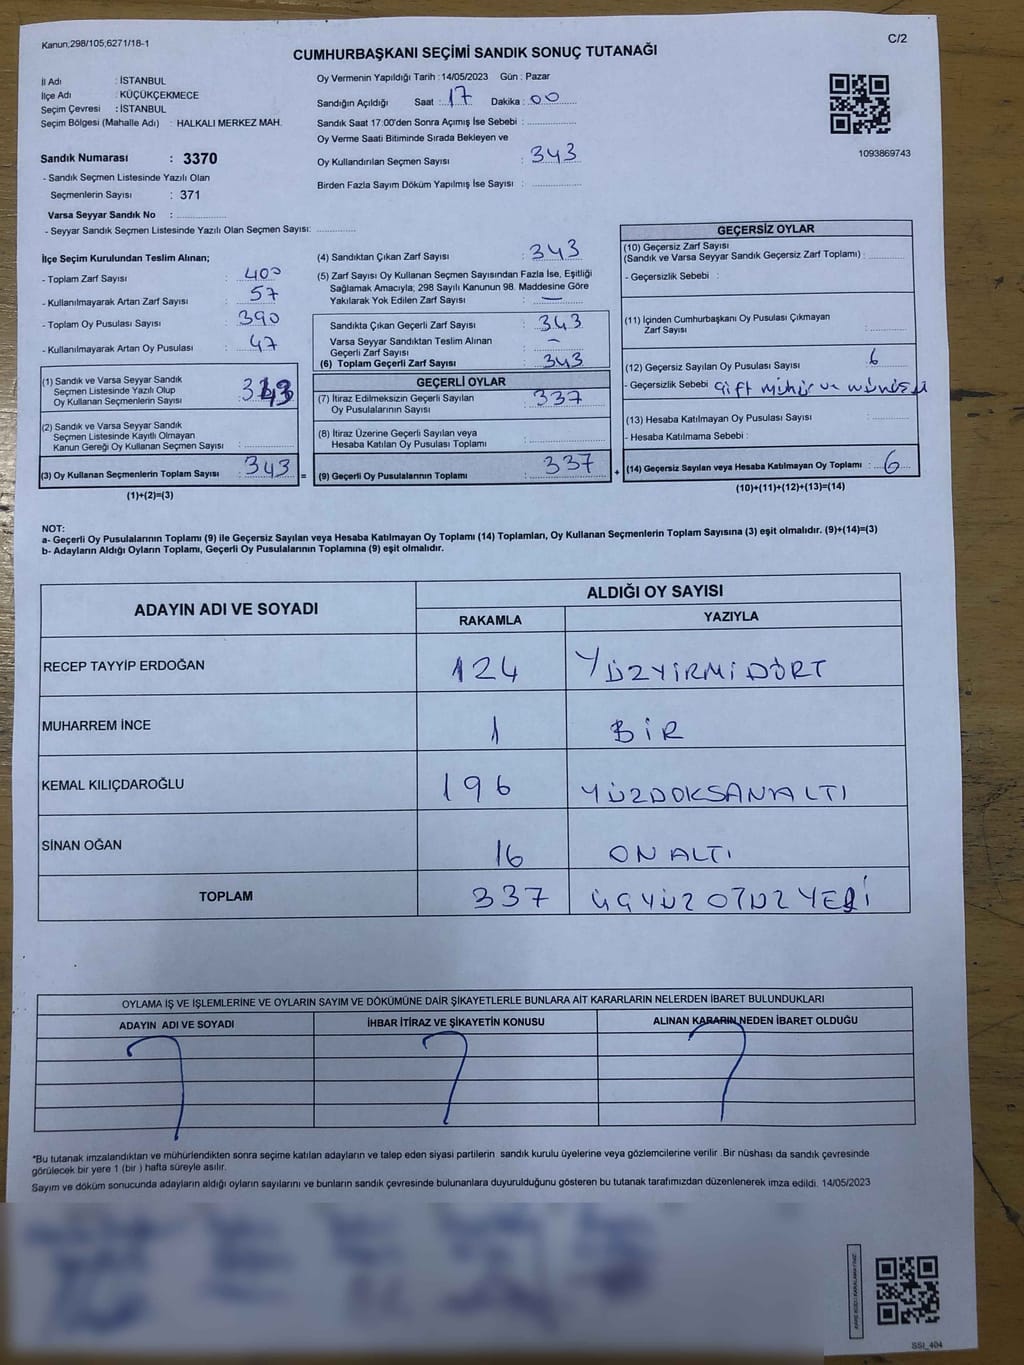 Kanun;298/105;6271/18-1
C/2
CUMHURBAŞKANI SEÇİMİ SANDIK SONUÇ TUTANAĞI
İl Adı : İSTANBUL
İlçe Adı : KÜÇÜKÇEKMECE
Seçim Çevresi : İSTANBUL
Seçim Bölgesi (Mahalle Adı) : HALKALI MERKEZ MAH.
Sandık Numarası : 3370
- Sandık Seçmen Listesinde Yazılı Olan
Seçmenlerin Sayısı : 371
Varsa Seyyar Sandık No : ..............
- Seyyar Sandık Seçmen Listesinde Yazılı Olan Seçmen Sayısı: ..............
Oy Vermenin Yapıldığı Tarih : 14/05/2023 Gün : Pazar
Sandığın Açıldığı Saat : 17 Dakika : 00
Sandık Saat 17:00'den Sonra Açımış İse Sebebi : ..............
Oy Verme Saati Bitiminde Sırada Bekleyen ve
Oy Kullandırılan Seçmen Sayısı : 343
Birden Fazla Sayım Döküm Yapılmış İse Sayısı : ..............
1093869743
İlçe Seçim Kurulundan Teslim Alınan;
- Toplam Zarf Sayısı : 400
- Kullanılmayarak Artan Zarf Sayısı : 57
- Toplam Oy Pusulası Sayısı : 390
- Kullanılmayarak Artan Oy Pusulası : 47
(1) Sandık ve Varsa Seyyar Sandık
Seçmen Listesinde Yazılı Olup
Oy Kullanan Seçmenlerin Sayısı : 343
(2) Sandık ve Varsa Seyyar Sandık
Seçmen Listesinde Kayıtlı Olmayan
Kanun Gereği Oy Kullanan Seçmen Sayısı : ..............
(3) Oy Kullanan Seçmenlerin Toplam Sayısı : 343 =
(1)+(2)=(3)
(4) Sandıktan Çıkan Zarf Sayısı : 343
(5) Zarf Sayısı Oy Kullanan Seçmen Sayısından Fazla İse, Eşitliği
Sağlamak Amacıyla; 298 Sayılı Kanunun 98. Maddesine Göre
Yakılarak Yok Edilen Zarf Sayısı : —
Sandıkta Çıkan Geçerli Zarf Sayısı : 343
Varsa Seyyar Sandıktan Teslim Alınan
Geçerli Zarf Sayısı : –
(6) Toplam Geçerli Zarf Sayısı : 343
GEÇERLİ OYLAR
(7) İtiraz Edilmeksizin Geçerli Sayılan
Oy Pusulalarının Sayısı : 337
(8) İtiraz Üzerine Geçerli Sayılan veya
Hesaba Katılan Oy Pusulası Toplamı : ..............
(9) Geçerli Oy Pusulalarının Toplamı : 337 +
GEÇERSİZ OYLAR
(10) Geçersiz Zarf Sayısı
(Sandık ve Varsa Seyyar Sandık Geçersiz Zarf Toplamı) : ..........
- Geçersizlik Sebebi :
(11) İçinden Cumhurbaşkanı Oy Pusulası Çıkmayan
Zarf Sayısı : ..........
(12) Geçersiz Sayılan Oy Pusulası Sayısı : 6
- Geçersizlik Sebebi Çift mühür ve
(13) Hesaba Katılmayan Oy Pusulası Sayısı : ..........
- Hesaba Katılmama Sebebi :
(14) Geçersiz Sayılan veya Hesaba Katılmayan Oy Toplamı : 6
(10)+(11)+(12)+(13)=(14)
NOT:
a- Geçerli Oy Pusulalarının Toplamı (9) ile Geçersiz Sayılan veya Hesaba Katılmayan Oy Toplamı (14) Toplamları, Oy Kullanan Seçmenlerin Toplam Sayısına (3) eşit olmalıdır. (9)+(14)=(3)
b- Adayların Aldığı Oyların Toplamı, Geçerli Oy Pusulalarının Toplamına (9) eşit olmalıdır.
ADAYIN ADI VE SOYADI
ALDIĞI OY SAYISI
RAKAMLA YAZIYLA
RECEP TAYYİP ERDOĞAN 124 YÜZYİRMİDÖRT
MUHARREM İNCE 1 BİR
KEMAL KILIÇDAROĞLU 196 YÜZDOKSANALTI
SİNAN OĞAN 16 ONALTI
TOPLAM 337 ÜÇYÜZ OTUZ YEDİ
OYLAMA İŞ VE İŞLEMLERİNE VE OYLARIN SAYIM VE DÖKÜMÜNE DAİR ŞİKAYETLERLE BUNLARA AİT KARARLARIN NELERDEN İBARET BULUNDUKLARI
ADAYIN ADI VE SOYADI İHBAR İTİRAZ VE ŞİKAYETİN KONUSU ALINAN KARARIN NEDEN İBARET OLDUĞU
*Bu tutanak imzalandıktan ve mühürlendikten sonra seçime katılan adayların ve talep eden siyasi partilerin sandık kurulu üyelerine veya gözlemcilerine verilir .Bir nüshası da sandık çevresinde
görülecek bir yere 1 (bir ) hafta süreyle asılır.
Sayım ve döküm sonucunda adayların aldığı oyların sayılarını ve bunların sandık çevresinde bulunanlara duyurulduğunu gösteren bu tutanak tarafımızdan düzenlenerek imza edildi. 14/05/2023
SSI_404